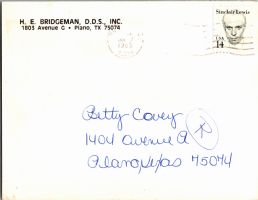 H. E. BRIDGEMAN, D.D.S., INC.
1803 Avenue G • Plano, TX 75074
Sinclair Lewis
USA
14
1985
Betty Covey
1404 Avenue A
Plano, Texas 75074